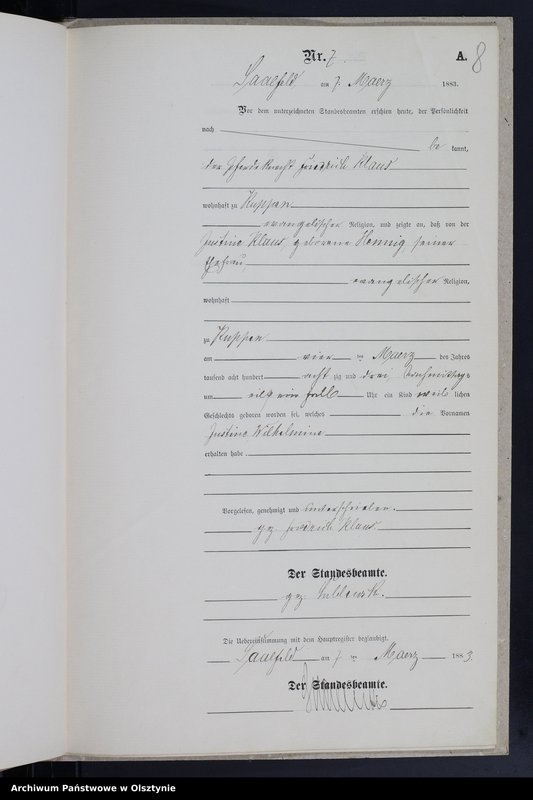 Nr. 7.
A. 8
Saalfeld am 7. Maerz 1883.
Vor dem unterzeichneten Standesbeamten erschien heute, der Persönlichkeit
nach
be kannt,
der Pferdeknecht Friedrich Klaus
wohnhaft zu Kuppen
evangelischer Religion, und zeigte an, daß von der
Justine Klaus geborene Hennig seiner
Ehefrau
evangelischer Religion,
wohnhaft
zu Kuppen
am vier ten Maerz des Jahres
tausend acht hundert acht zig und drei Nachmittags
um Uhr ein Kind weib lichen
Geschlechts geboren worden sei, welches die Vornamen
Justine Wilhelmine
erhalten habe.
Vorgelesen, genehmigt und unterschrieben.
gz. Friedrich Klaus
Der Standesbeamte.
gz.
Die Uebereinstimmung mit dem Hauptregister beglaubigt.
Saalfeld am 7 ten Maerz 1883.
Der Standesbeamte.
Archiwum Państwowe w Olsztynie